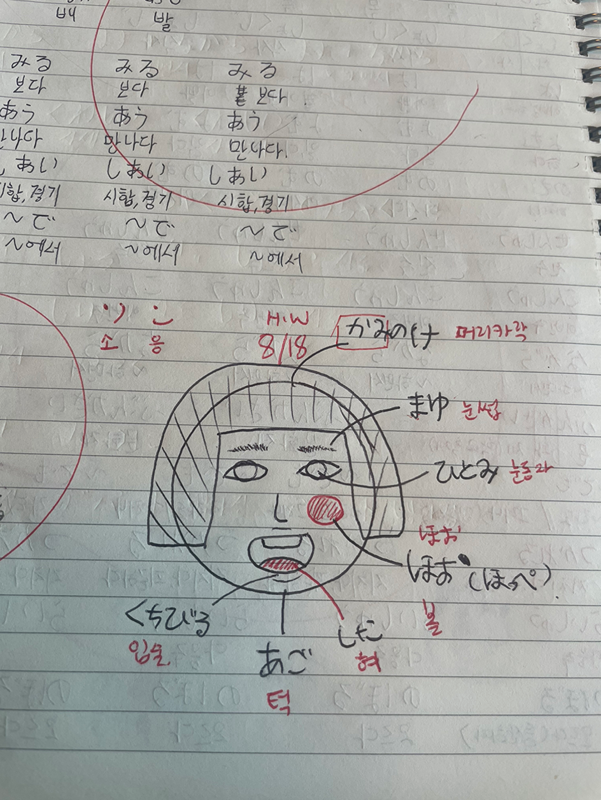 배 발
みる みる みる
보다 보다 보다.
あう あう あう
만나다 만나다 만나다.
しあい しあい しあい
시합,경기 시합,경기 시합,경기
~で ~で ~で
~에서 ~에서 ~에서
H.W かみのけ 머리카락
소 응 8/18
まゆ 눈썹
ひとみ 눈동자
ほお
ほお (ほっぺ).
볼
くちびる あご した
입술 턱 혀